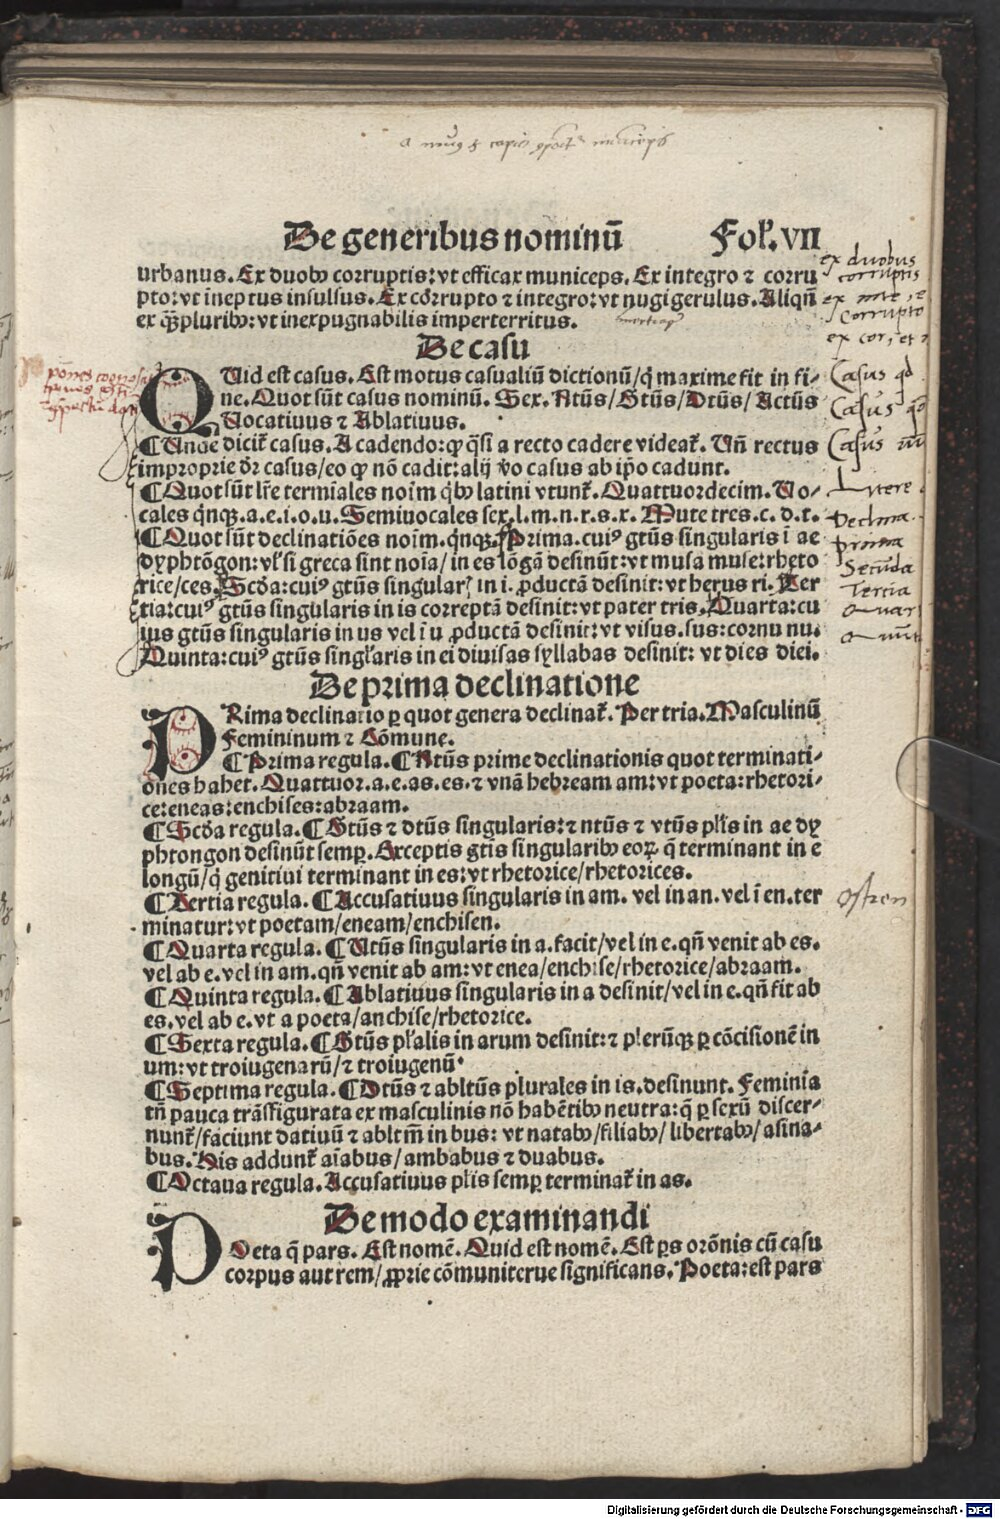 De generibus nominū Fol. VII
urbanus. Ex duobꝰ corruptis: vt efficax municeps. Ex integro ⁊ corru
pto: vt ineptus insulsus. Ex corrupto ⁊ integro: vt nugigerulus. Aliqñ
ex q̃pluribꝰ: vt inexpugnabilis imperterritus.
De casu
QUid est casus. Est motus casualiū dictionū/ q̇ maxime fit in fi-
ne. Quot sūt casus nominū. Sex. Ntūs/ Gtūs/ Dtūs/ Actūs
Uocatiuus ⁊ Ablatiuus.
¶ Unde dicit̃ casus. A cadendo: ꝙ q̄si a recto cadere videat̃. Uñ rectus
improprie dr̄ casus/ eo ꝙ nō cadit: alij v̄o casus ab ip̄o cadunt.
¶ Quot sūt lr̄e termīales noīm q̇bꝰ latini vtunt̃. Quattuordecim. Uo-
cales q̇nqꝫ. a. e. i. o. u. Semiuocales sex. l. m. n. r. s. x. Mute tres. c. d. t.
¶ Quot sūt declinatiōes noīm. q̇nqꝫ. Prima. cuiꝰ gtūs singularis ī ae
dyphtōgon: vl̓ si greca sint noīa/ in es lōgā desinūt: vt musa muse: rheto
rice/ces. Scd̄a: cuiꝰ gtūs singular̃ in i. ꝓductā desinit: vt herus ri. Ter
tia: cuiꝰ gtūs singularis in is correptā desinit: vt pater tris. Quarta: cu
ius gtūs singularis in us vel ī u ꝓductā desinit: vt visus. sus: cornu nu.
Quinta: cuiꝰ gtūs singl̓aris in ei diuisas syllabas desinit: vt dies diei.
De prima declinatione
PRima declinatio ꝑ quot genera declinat̃. Per tria. Masculinū
Femininum ⁊ Cōmune.
¶ Prima regula. ¶ Ntūs prime declinationis quot terminati-
ones habet. Quattuor. a. e. as. es. ⁊ vnā hebream am: vt poeta: rhetori-
ce: eneas: enchises: abraam.
¶ Scd̄a regula. ¶ Gtūs ⁊ dtūs singularis: ⁊ ntūs ⁊ vtūs pl̓is in ae dy
phtongon desinūt semꝑ. Exceptis gtis singularibꝰ eoꝝ q̄ terminant in e
longū/ q̇ genitiui terminant in es: vt rhetorice/ rhetorices.
¶ Tertia regula. ¶ Accusatiuus singularis in am. vel in an. vel ī en. ter
minatur: vt poetam/ eneam/ enchisen.
¶ Quarta regula. ¶ Utūs singularis in a. facit/ vel in e. qñ venit ab es.
vel ab e. vel in am. qñ venit ab am: vt enea/ enchise/ rhetorice/ abraam.
¶ Quinta regula. ¶ Ablatiuus singularis in a desinit/ vel in e. qñ fit ab
es. vel ab e. vt a poeta/ anchise/ rhetorice.
¶ Sexta regula. ¶ Gtūs pl̓alis in arum desinit: ⁊ plerūqꝫ ꝑ cōcisionē in
um: vt troiugenarū/ ⁊ troiugenū.
¶ Septima regula. ¶ Dtūs ⁊ abltūs plurales in is. desinunt. Feminia
tñ pauca trāsfigurata ex masculinis nō habētibꝰ neutra: q̄ ꝑ sexū discer-
nunt̃/ faciunt datiuū ⁊ abltm̄ in bus: vt natabꝰ/ filiabꝰ/ libertabꝰ/ asina-
bus. His addunt̃ aīabus/ ambabus ⁊ duabus.
¶ Octaua regula. Accusatiuus pl̓is semꝑ terminat̃ in as.
De modo examinandi
POeta q̄ pars. Est nomē. Quid est nomē. Est ꝑs orōnis cū casu
corpus aut rem/ ꝓprie cōmuniterue significans. Poeta: est pars
ex duobus
corruptis
corrupto
Casus
Casus
Casus
Litere
Declina.
prima
Secūda
Tertia
Quar
Digitalisierung gefördert durch die Deutsche Forschungsgemeinschaft - DFG